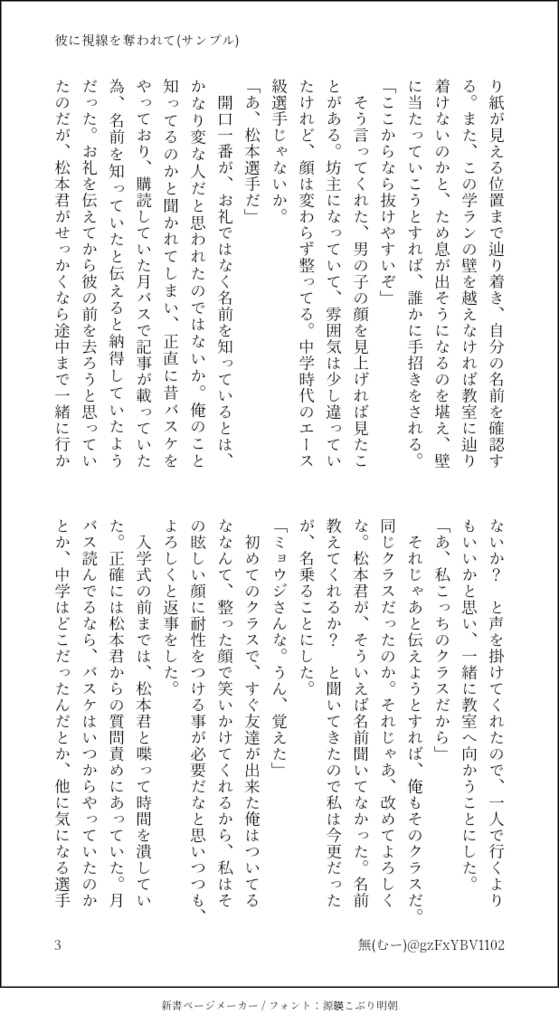 彼に視線を奪われて(サンプル)
り紙が見える位置まで辿り着き、自分の名前を確認す
る。また、この学ランの壁を越えなければ教室に辿り
着けないのかと、ため息が出そうになるのを堪え、壁
に当たっていこうとすれば、誰かに手招きをされる。
「ここからなら抜けやすいぞ」
そう言ってくれた、男の子の顔を見上げれば見たこ
とがある。坊主になっていて、雰囲気は少し違ってい
たけれど、顔は変わらず整ってる。中学時代のエース
級選手じゃないか。
「あ、松本選手だ」
開口一番が、お礼ではなく名前を知っているとは、
かなり変な人だと思われたのではないか。俺のこと
知ってるのかと聞かれてしまい、正直に昔バスケを
やっており、購読していた月バスで記事が載っていた
為、名前を知っていたと伝えると納得していたよう
だった。お礼を伝えてから彼の前を去ろうと思ってい
たのだが、松本君がせっかくなら途中まで一緒に行か
ないか？　と声を掛けてくれたので、一人で行くより
もいいかと思い、一緒に教室へ向かうことにした。
「あ、私こっちのクラスだから」
それじゃあと伝えようとすれば、俺もそのクラスだ。
同じクラスだったのか。それじゃあ、改めてよろしく
な。松本君が、そういえば名前聞いてなかった。名前
教えてくれるか？　と聞いてきたので私は今更だった
が、名乗ることにした。
「ミョウジさんな。うん、覚えた」
初めてのクラスで、すぐ友達が出来た俺はついてる
ななんて、整った顔で笑いかけてくれるから、私はそ
の眩しい顔に耐性をつける事が必要だなと思いつつも、
よろしくと返事をした。
入学式の前までは、松本君と喋って時間を潰してい
た。正確には松本君からの質問責めにあっていた。月
バス読んでるなら、バスケはいつからやっていたのか
とか、中学はどこだったんだとか、他に気になる選手
3
無(むー)@gzFxYBV1102
新書ページメーカー / フォント：源暎こぶり明朝